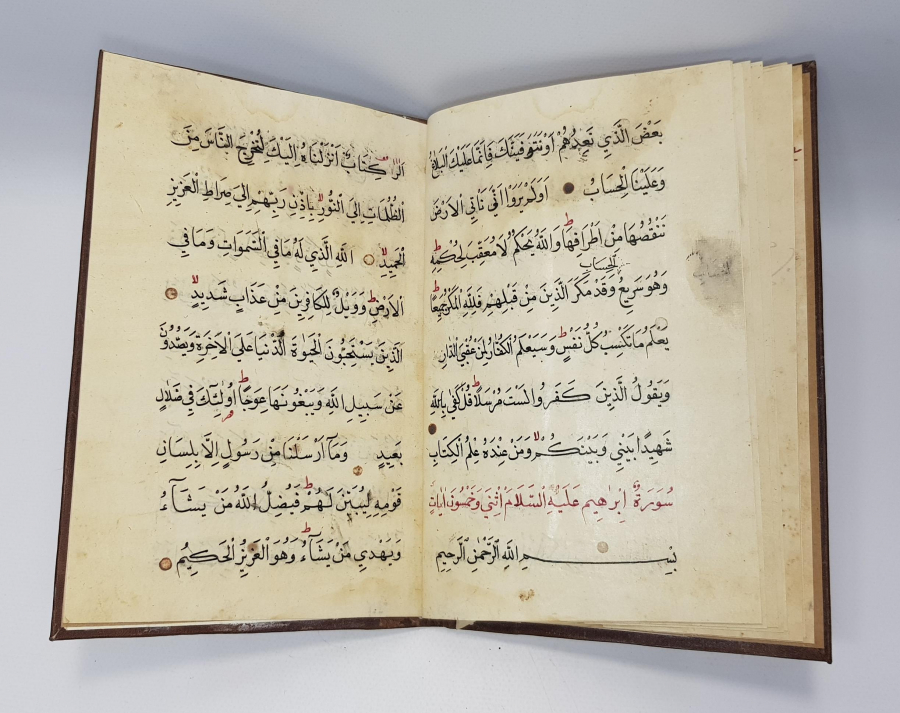 بَعْضَ الَّذِي نَعِدُهُمْ اَوْ نَتَوَفَّيَنَّكَ فَاِنَّمَا عَلَيْكَ الْبَلَاغُ
وَعَلَيْنَا الْحِسَابُ اَوَلَمْ يَرَوْا اَنَّا نَأْتِي الْاَرْضَ
نَنْقُصُهَا مِنْ اَطْرَافِهَا ط وَاللّٰهُ يَحْكُمُ لَا مُعَقِّبَ لِحُكْمِهِ ط
الحساب
وَهُوَ سَرِيعُ وَقَدْ مَكَرَ الَّذِينَ مِنْ قَبْلِهِمْ فَلِلّٰهِ الْمَكْرُ جَمِيعًا ط
يَعْلَمُ مَا تَكْسِبُ كُلُّ نَفْسٍ ط وَسَيَعْلَمُ الْكُفَّارُ لِمَنْ عُقْبَى الدَّارِ
وَيَقُولُ الَّذِينَ كَفَرُوا لَسْتَ مُرْسَلًا ط قُلْ كَفٰي بِاللّٰهِ
شَهِيدًا بَيْنِي وَبَيْنَكُمْ لا وَمَنْ عِنْدَهُ عِلْمُ الْكِتَابِ
سُورَةُ اِبْرٰهِيمَ عَلَيْهِ السَّلَامُ اثْنِي وَخَمْسُونَ اٰيَاتٍ
بِسْمِ اللّٰهِ الرَّحْمٰنِ الرَّحِيمِ
الٓرٰ كِتَابٌ اَنْزَلْنَاهُ اِلَيْكَ لِتُخْرِجَ النَّاسَ مِنَ
الظُّلُمَاتِ اِلَي النُّورِ لا بِاِذْنِ رَبِّهِمْ اِلٰي صِرَاطِ الْعَزِيزِ
الْحَمِيدِ لا اللّٰهِ الَّذِي لَهُ مَا فِي السَّمَوَاتِ وَمَا فِي
الْاَرْضِ ط وَوَيْلٌ لِلْكَافِرِينَ مِنْ عَذَابٍ شَدِيدٍ لا
الَّذِينَ يَسْتَحِبُّونَ الْحَيٰوةَ الدُّنْيَا عَلَي الْاٰخِرَةِ وَيَصُدُّونَ
عَنْ سَبِيلِ اللّٰهِ وَيَبْغُونَهَا عِوَجًا ط اُولٰئِكَ فِي ضَلَالٍ
بَعِيدٍ وَمَآ اَرْسَلْنَا مِنْ رَسُولٍ اِلَّا بِلِسَانِ
قَوْمِهِ لِيُبَيِّنَ لَهُمْ ط فَيُضِلُّ اللّٰهُ مَنْ يَشَآءُ
وَيَهْدِي مَنْ يَشَآءُ ط وَهُوَ الْعَزِيزُ الْحَكِيمُ